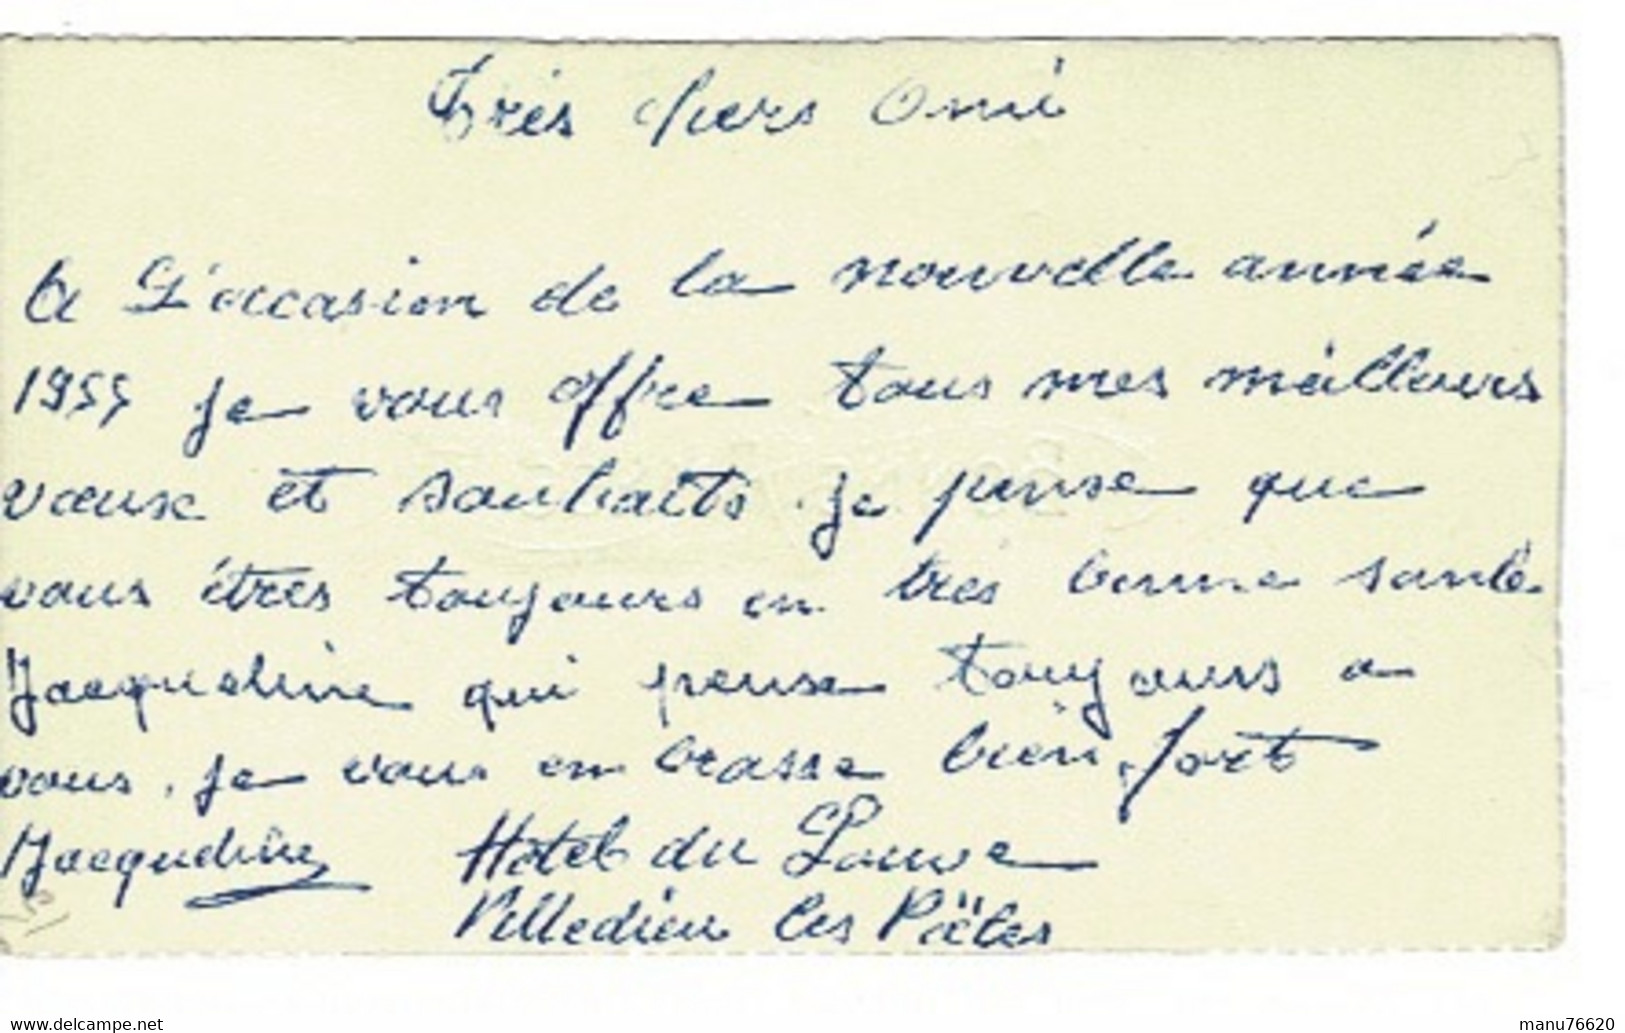 Très chers Omi
A L'occasion de la nouvelle année
1955 je vous offre tous mes meilleurs
vœux et souhaits. je pense que
vous étres toujours en très bonne santé
Jacqueline qui pense toujours a
vous. je vous en brasse bien fort
Jacqueline Hôtel du Louvre
Villedieu les Pöeles
www.delcampe.net
manu76620